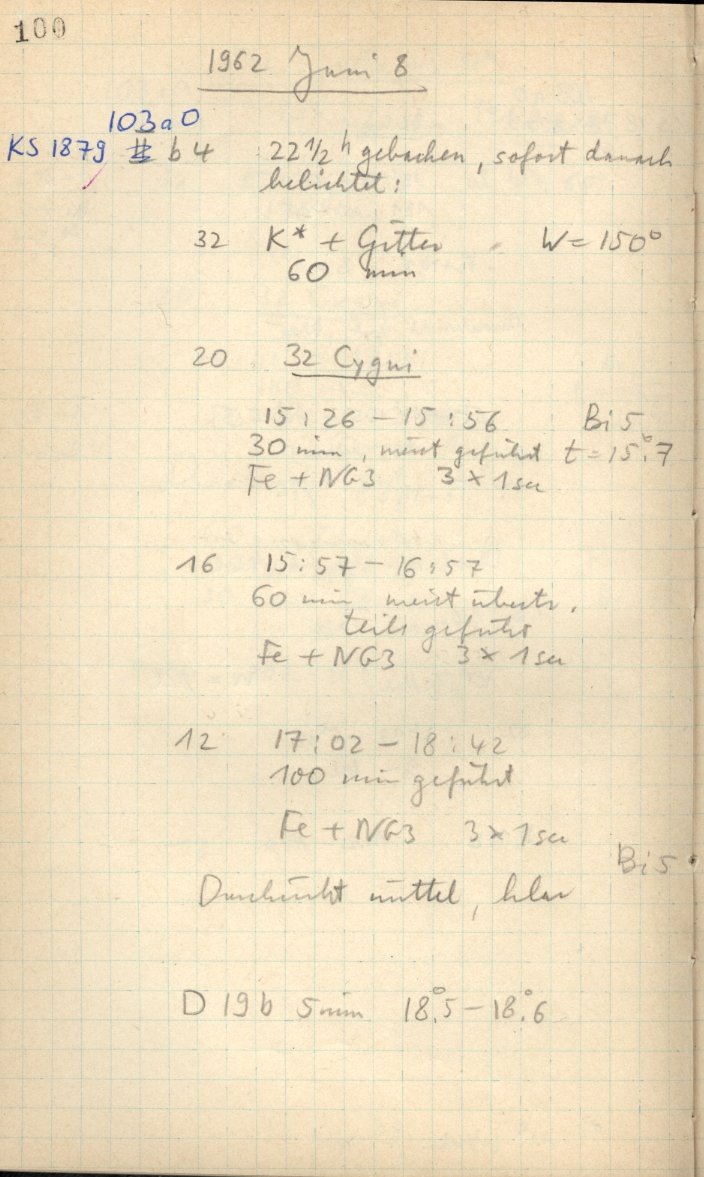 100
1962 Juni 8
103a0
KS 1879 b 4 22 1/2 h gebacken, sofort danach
belichtet:
32 K* + Gitter W = 150°
60 min
20 32 Cygni
15:26 – 15:56 Bi 5
30 min, meist geführt t = 15°.7
Fe + NG3 3 × 1 sec
16 15:57 – 16:57
60 min meist übertr.
teils geführt
Fe + NG3 3 × 1 sec
12 17:02 – 18:42
100 min geführt
Fe + NG3 3 × 1 sec
Bi 5
Durchsicht mittel, klar
D 19b 5 min 18°.5 – 18°.6